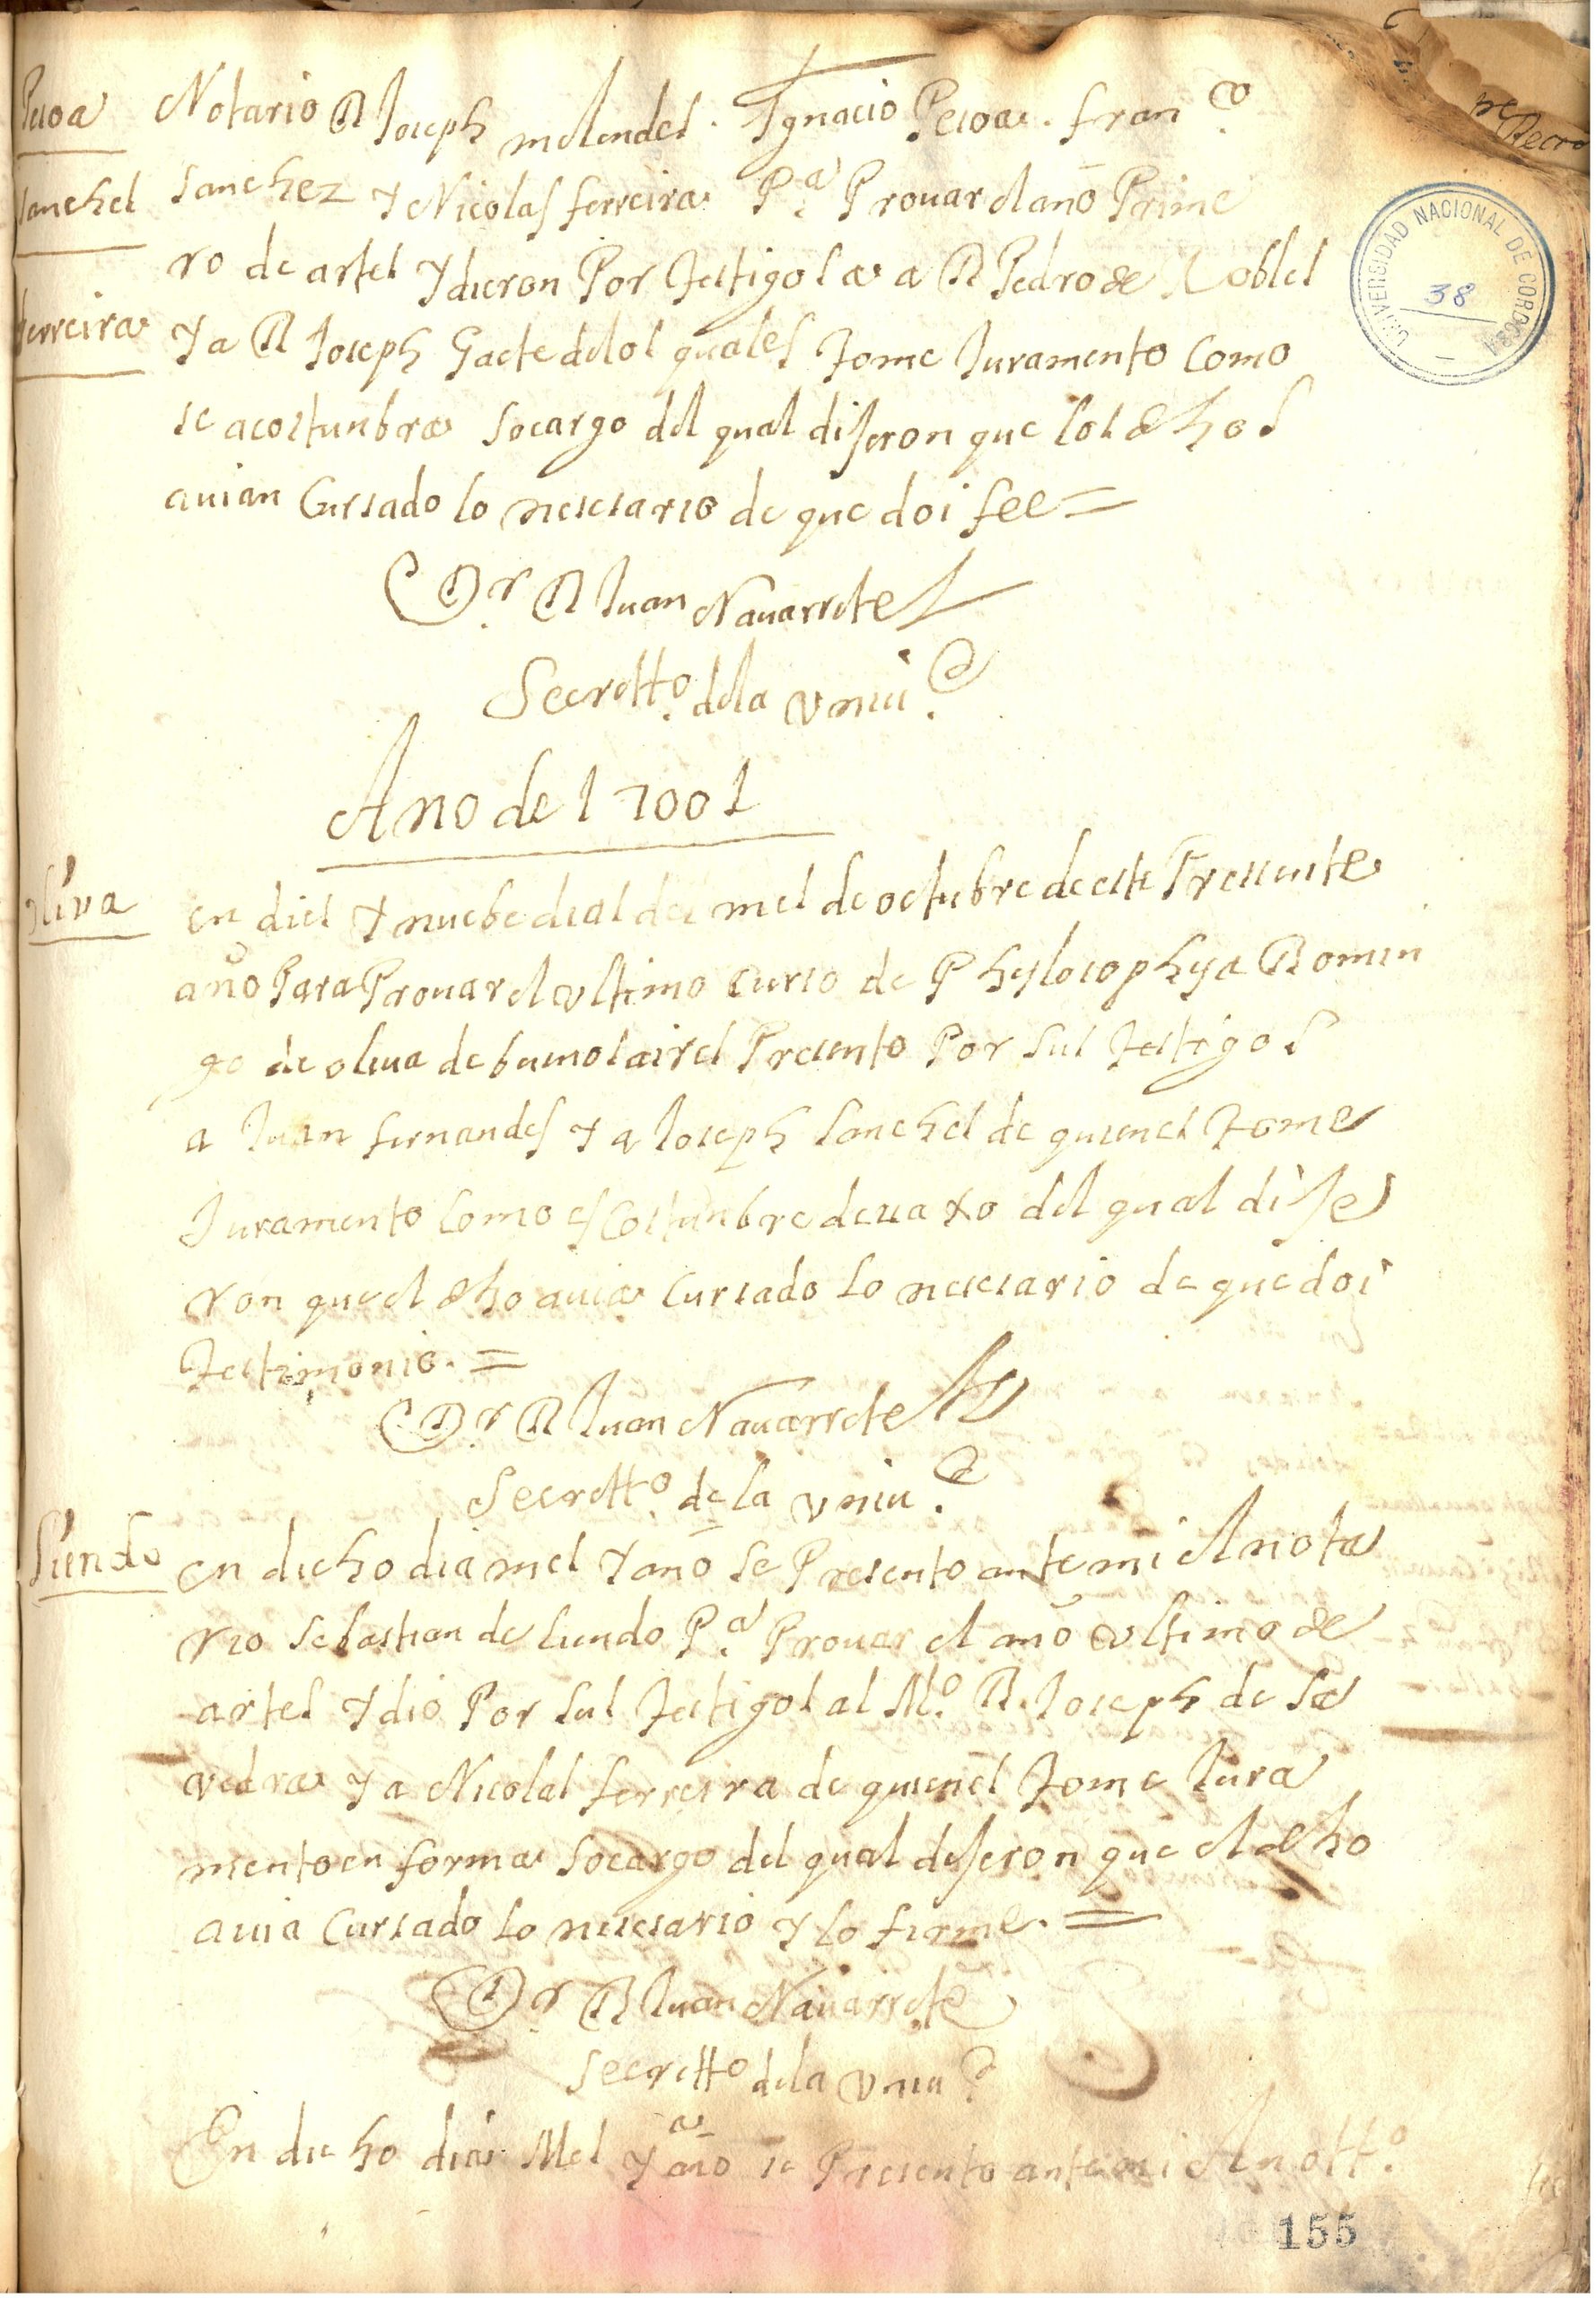 Notario D Joseph melendes. Ignacio Pesoa. fran.co
Pesoa
sanches
ferreira
sanchez y Nicolas ferreira P.a Prouar el año Prime
ro de artes y dieron Por testigos a a D Pedro de Robles
y a D Joseph Gaete de los quales tome Juramento como
se acostunbra socargo del qual dijeron que los dhos
auian Cursado lo nesesario de que doi fee =
Dr. D Juan Nauarrete
Secrett.o de la vniu.d
Ano de 1 7001
oliva
en dies y nuebe dias del mes de octubre de este Pressente
año Para Prouar el vltimo curso de Phylosophya Domin
go de oliua de buenos aires Presento Por sus testigos
a Juan fernandes y a Joseph sanches de quienes tome
Juramento como es costunbre deuaxo del qual dije
ron que el dho auia cursado lo nesesario de que doi
testimonio. =
Dr. D Juan Nauarrete
Secrett.o de la vniu.d
Liendo
en dicho dia mes y año se Presento ante mi el nota
rio sebastian de liendo P.a Prouar el año vltimo de
artes y dio Por sus testigos al M.o D. Joseph de sa
vedra y a Nicolas ferreira de quienes tome Jura
mento en forma socargo del qual dijeron que el dho
auia cursado lo nesesario y lo firme. =
Dr. D Juan Nauarrete
Secrett.o de la vniu.d
En dicho dia Mes y año se Presento ante mi el nott.o
UNIVERSIDAD NACIONAL DE CORDOBA
38
155